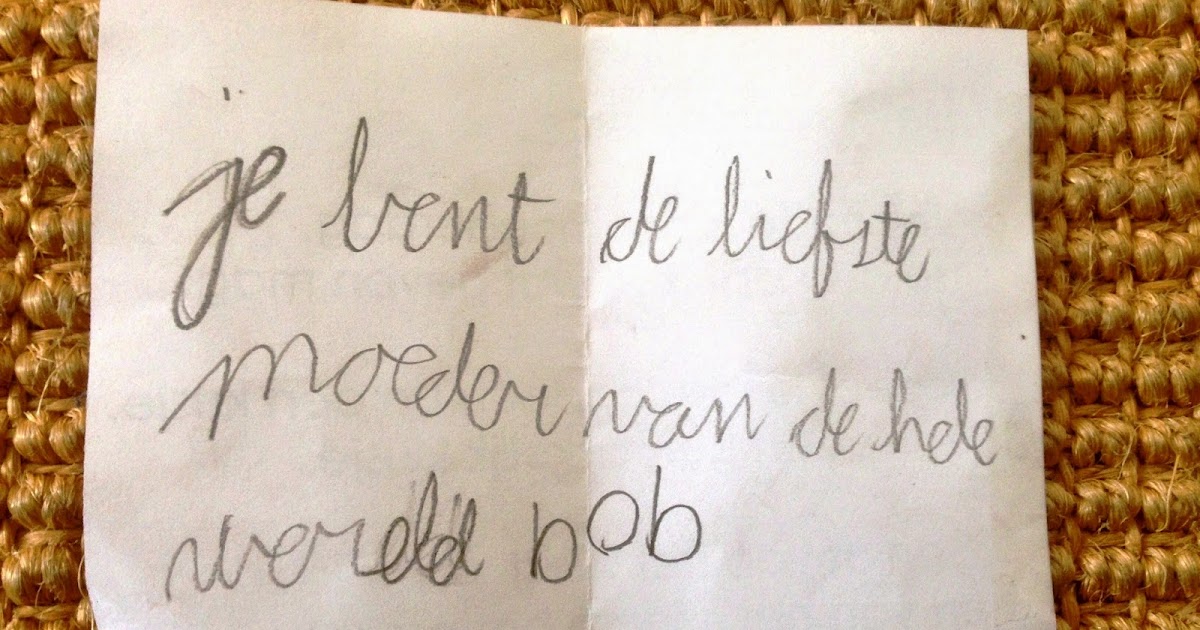 je bent de liefste
moeder van de hele
wereld bob